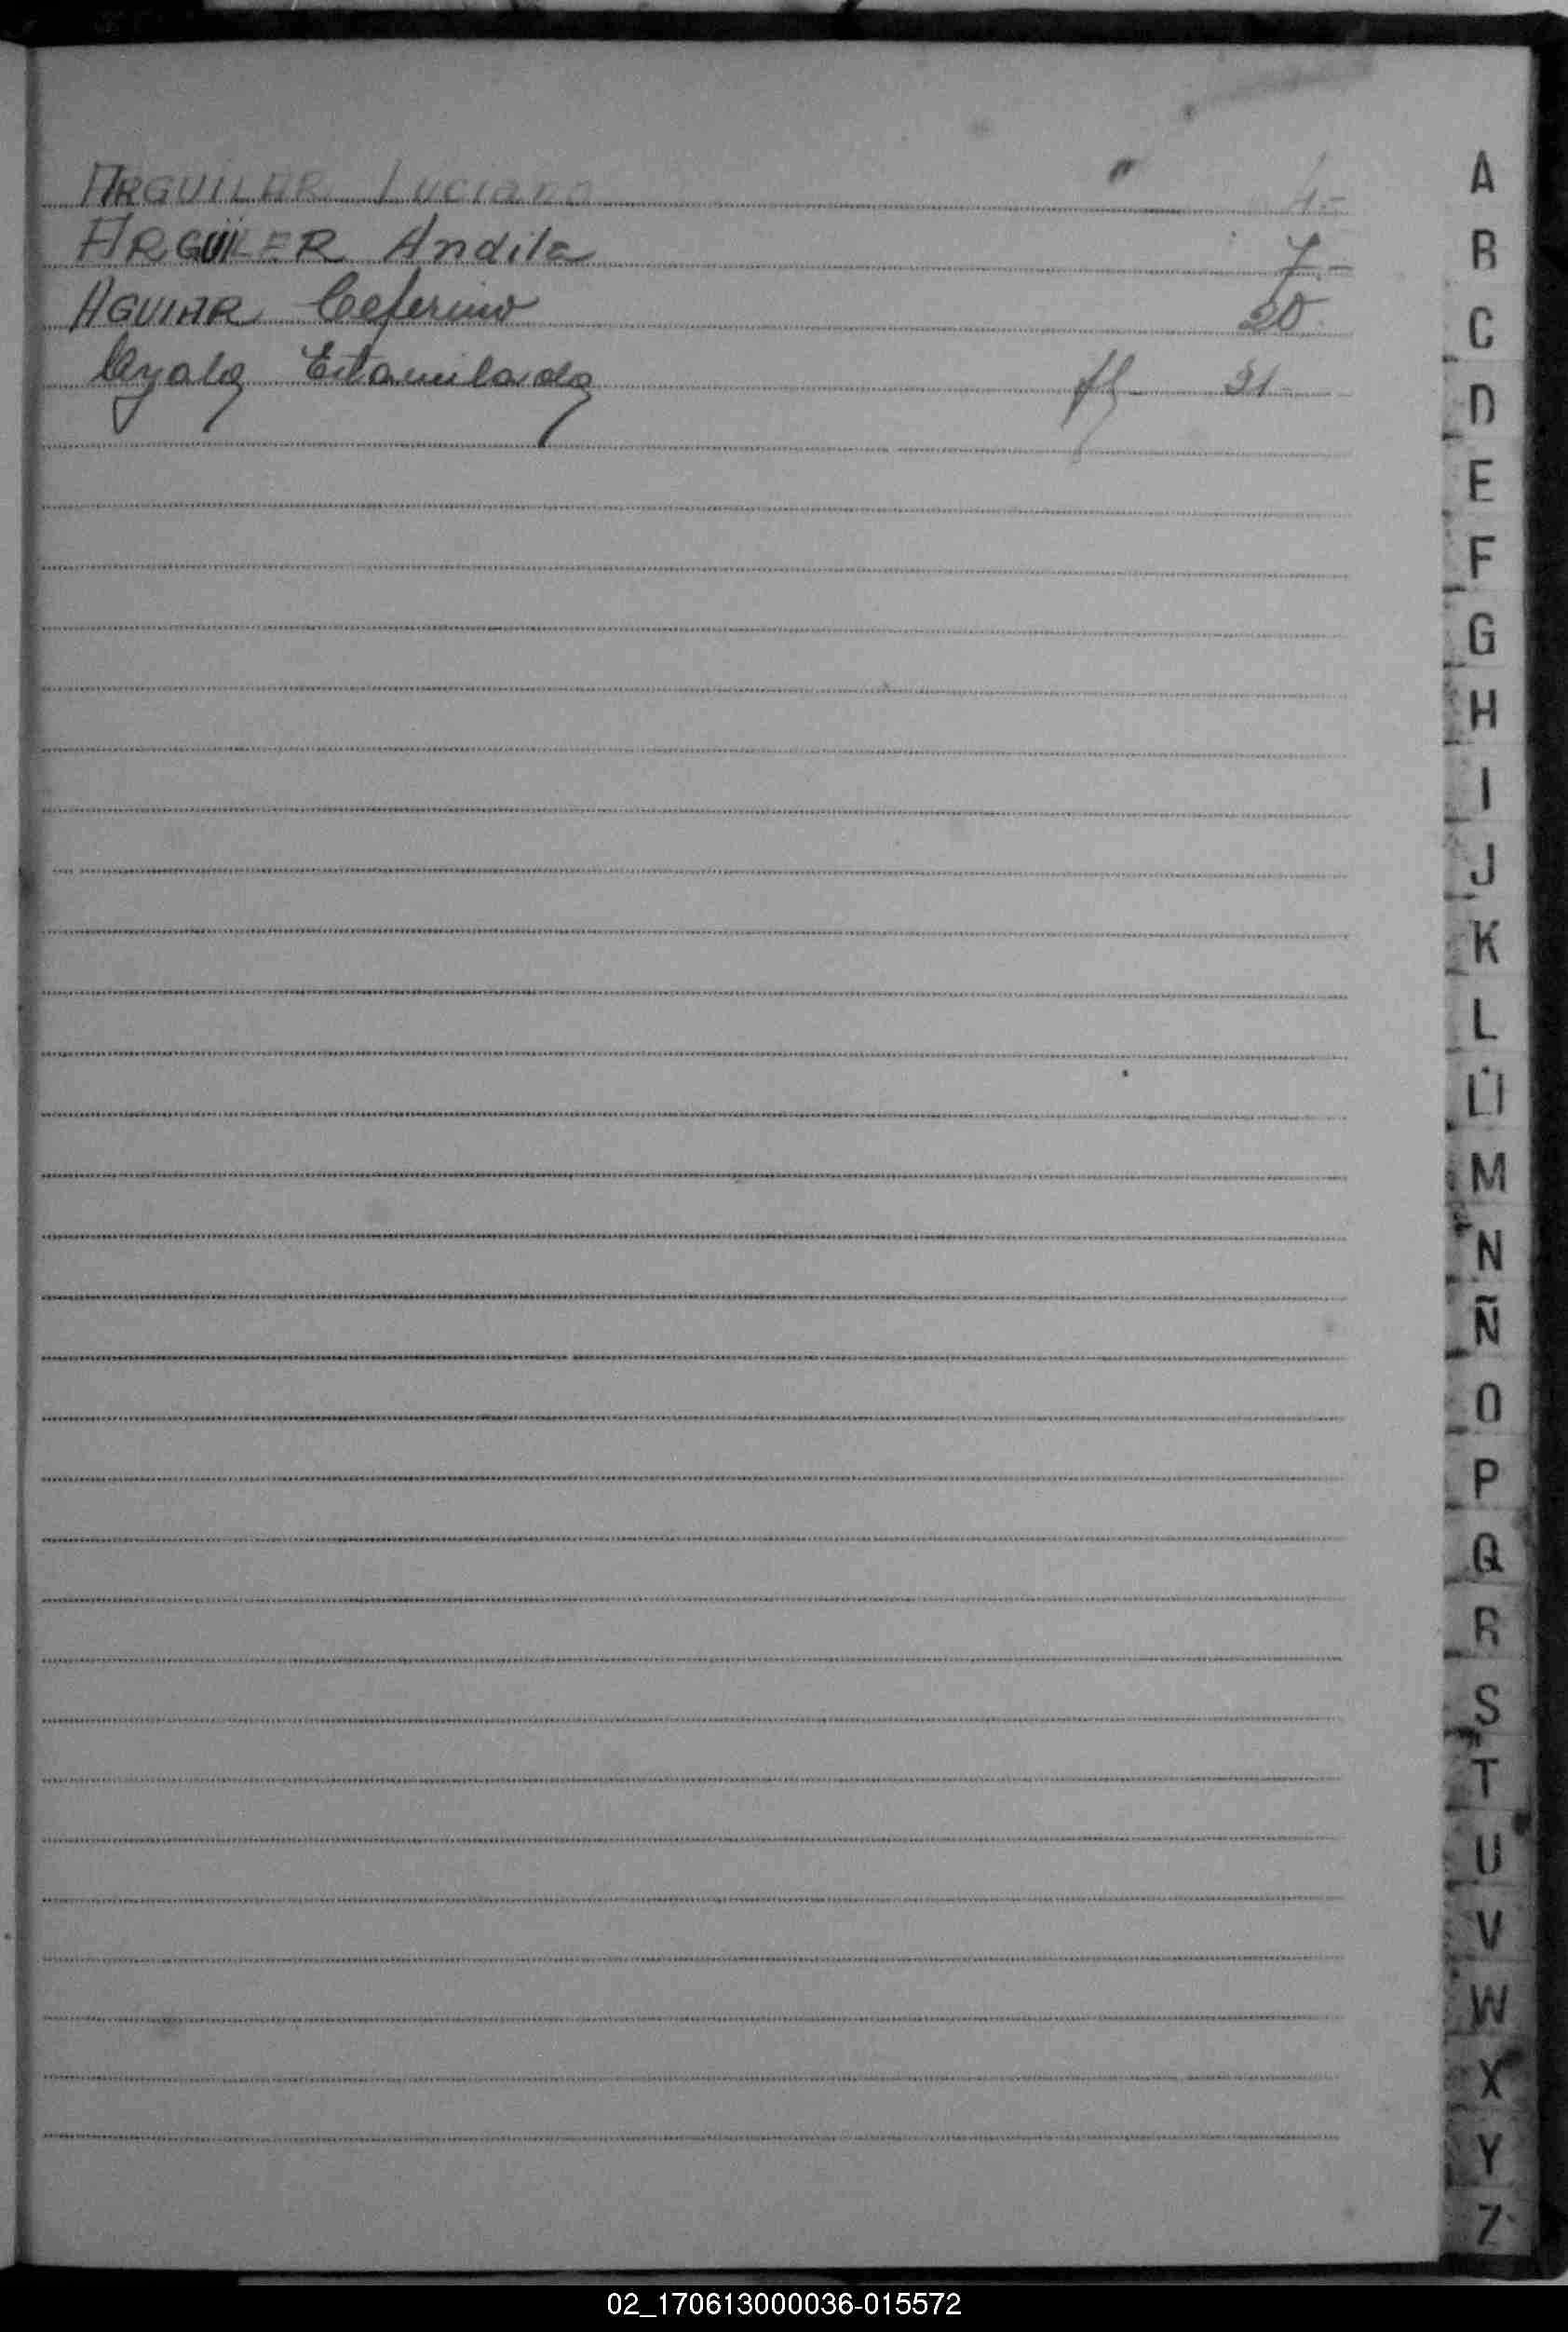 ARGUILAR Luciano " 1.-
ARGUILER Andila 7.-
AGUIAR Ceferino 20
Ayala Estanilada fl 21
A
B
C
D
E
F
G
H
I
J
K
L
M
N
Ñ
O
P
Q
R
S
T
U
V
W
X
Y
Z
02_170613000036-015572